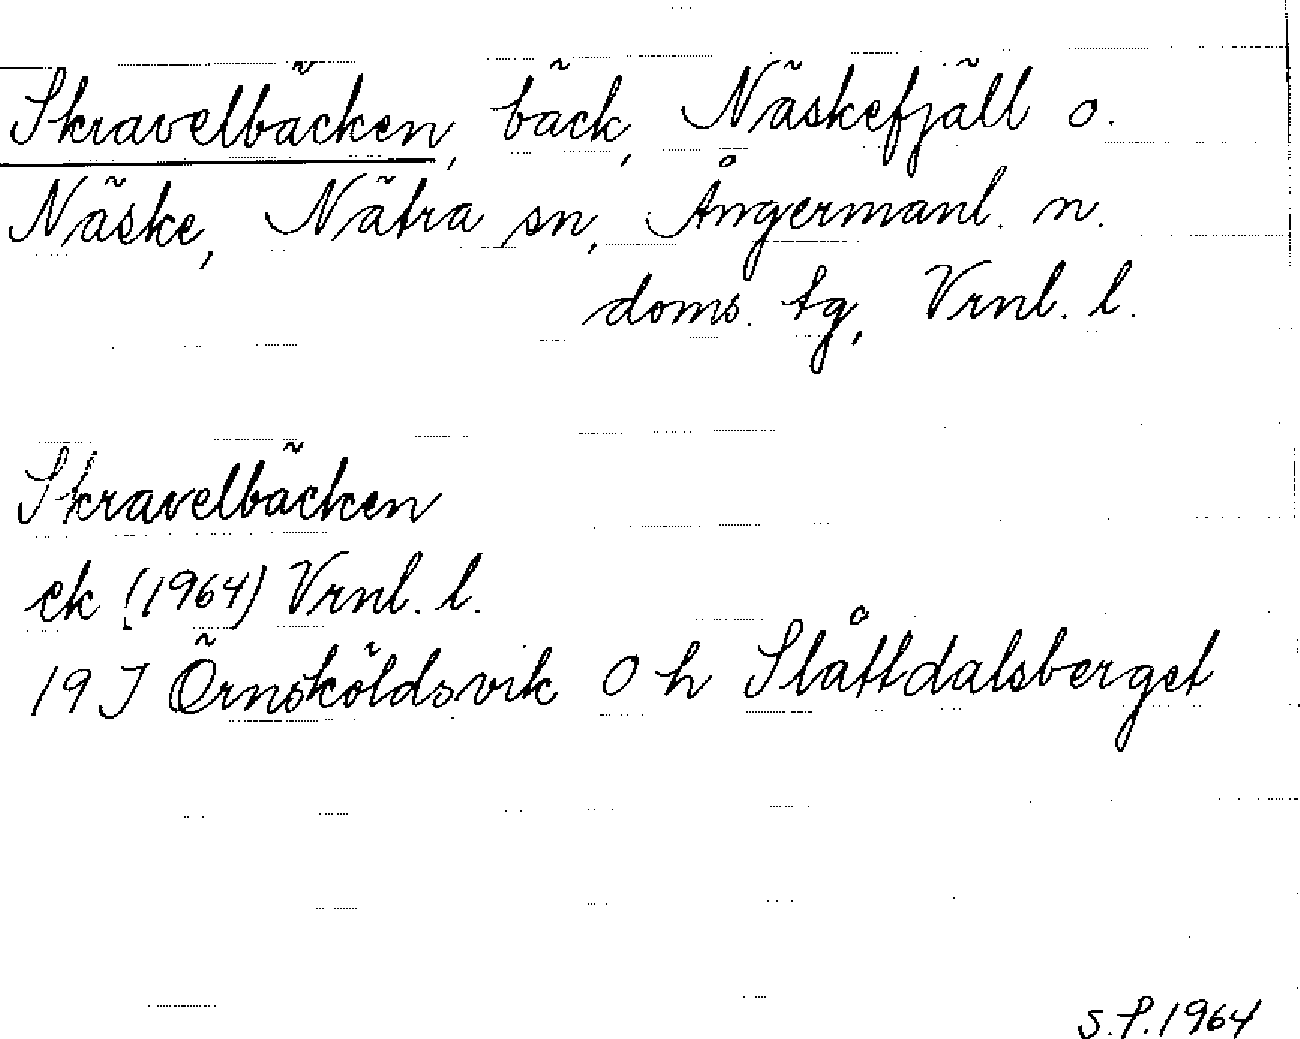 Skravelbäcken, bäck, Näskefjäll o.
Näske, Nätra sn, Ångermanl. n.
doms. tg, Vrnl. l.
Skravelbäcken
ek (1964) Vrnl. l.
19 J Örnsköldsvik O h Slåttdalsberget
S.P. 1964